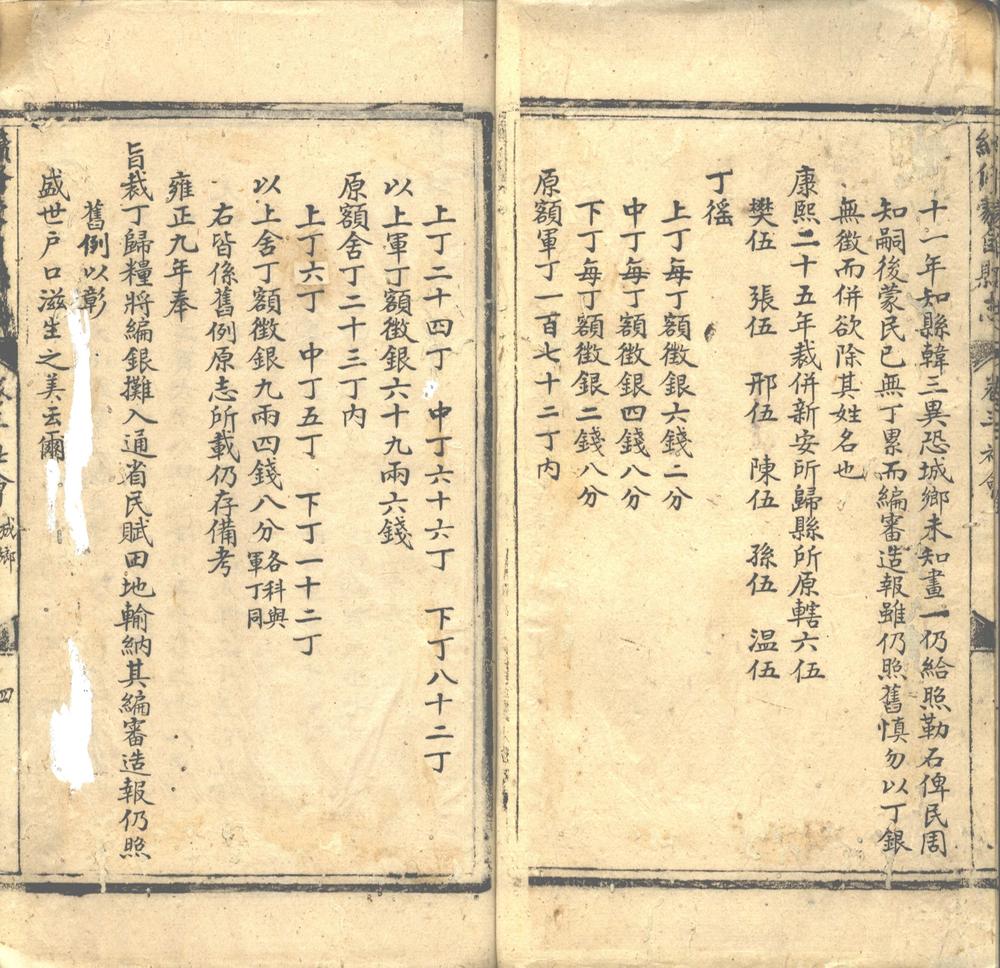 十一年知縣韓三異恐城鄉未知畫一仍給照勒石俾民周
知嗣後蒙民已無丁累而編審造報雖仍照舊慎勿以丁銀
無徵而併欲除其姓名也
康熙二十五年裁併新安所歸縣所原轄六伍
樊伍 張伍 邢伍 陳伍 孫伍 温伍
丁徭
上丁每丁額徵銀六錢二分
中丁每丁額徵銀四錢八分
下丁每丁額徵銀二錢八分
原額軍丁一百七十二丁内
上丁二十四丁 中丁六十六丁 下丁八十二丁
以上軍丁額徵銀六十九兩六錢
原額舍丁二十三丁内
上丁六丁 中丁五丁 下丁一十二丁
以上舍丁額徵銀九兩四錢八分各科與軍丁同
右皆係舊例原志所載仍存備考
雍正九年奉
旨裁丁歸糧將編銀攤入通省民賦田地輸納其編審造報仍照
舊例以彰
盛世戸口滋生之美云爾
縣志 卷三 社會
城鄉 四